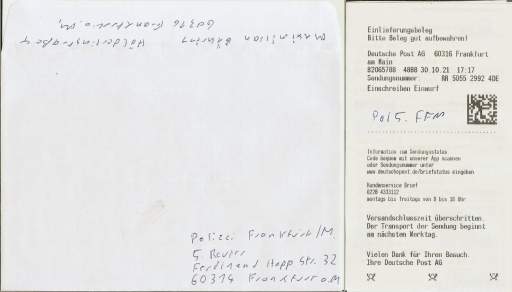 Maximilian Bähring Hölderlinstraße 4
60316 Frankfurt a. M,
Polizei Frankfurt/M.
5. Revier
Ferdinand Happ Str. 32
60314 Frankfurt a.M
Einlieferungsbeleg
Bitte Beleg gut aufbewahren!
Deutsche Post AG 60316 Frankfurt
am Main
82065788 4888 30.10.21 17:17
Sendungsnummer: RR 5055 2992 4DE
Einschreiben Einwurf
Pol 5. FFM
Information zum Sendungsstatus
Code bequem mit unserer App scannen
oder Sendungsnummer unter
www.deutschepost.de/briefstatus eingeben
Kundenservice Brief
0228 4333112
montags bis freitags von 8 bis 18 Uhr
Versandschlusszeit überschritten.
Der Transport der Sendung beginnt
am nächsten Werktag.
Vielen Dank für Ihren Besuch.
Ihre Deutsche Post AG